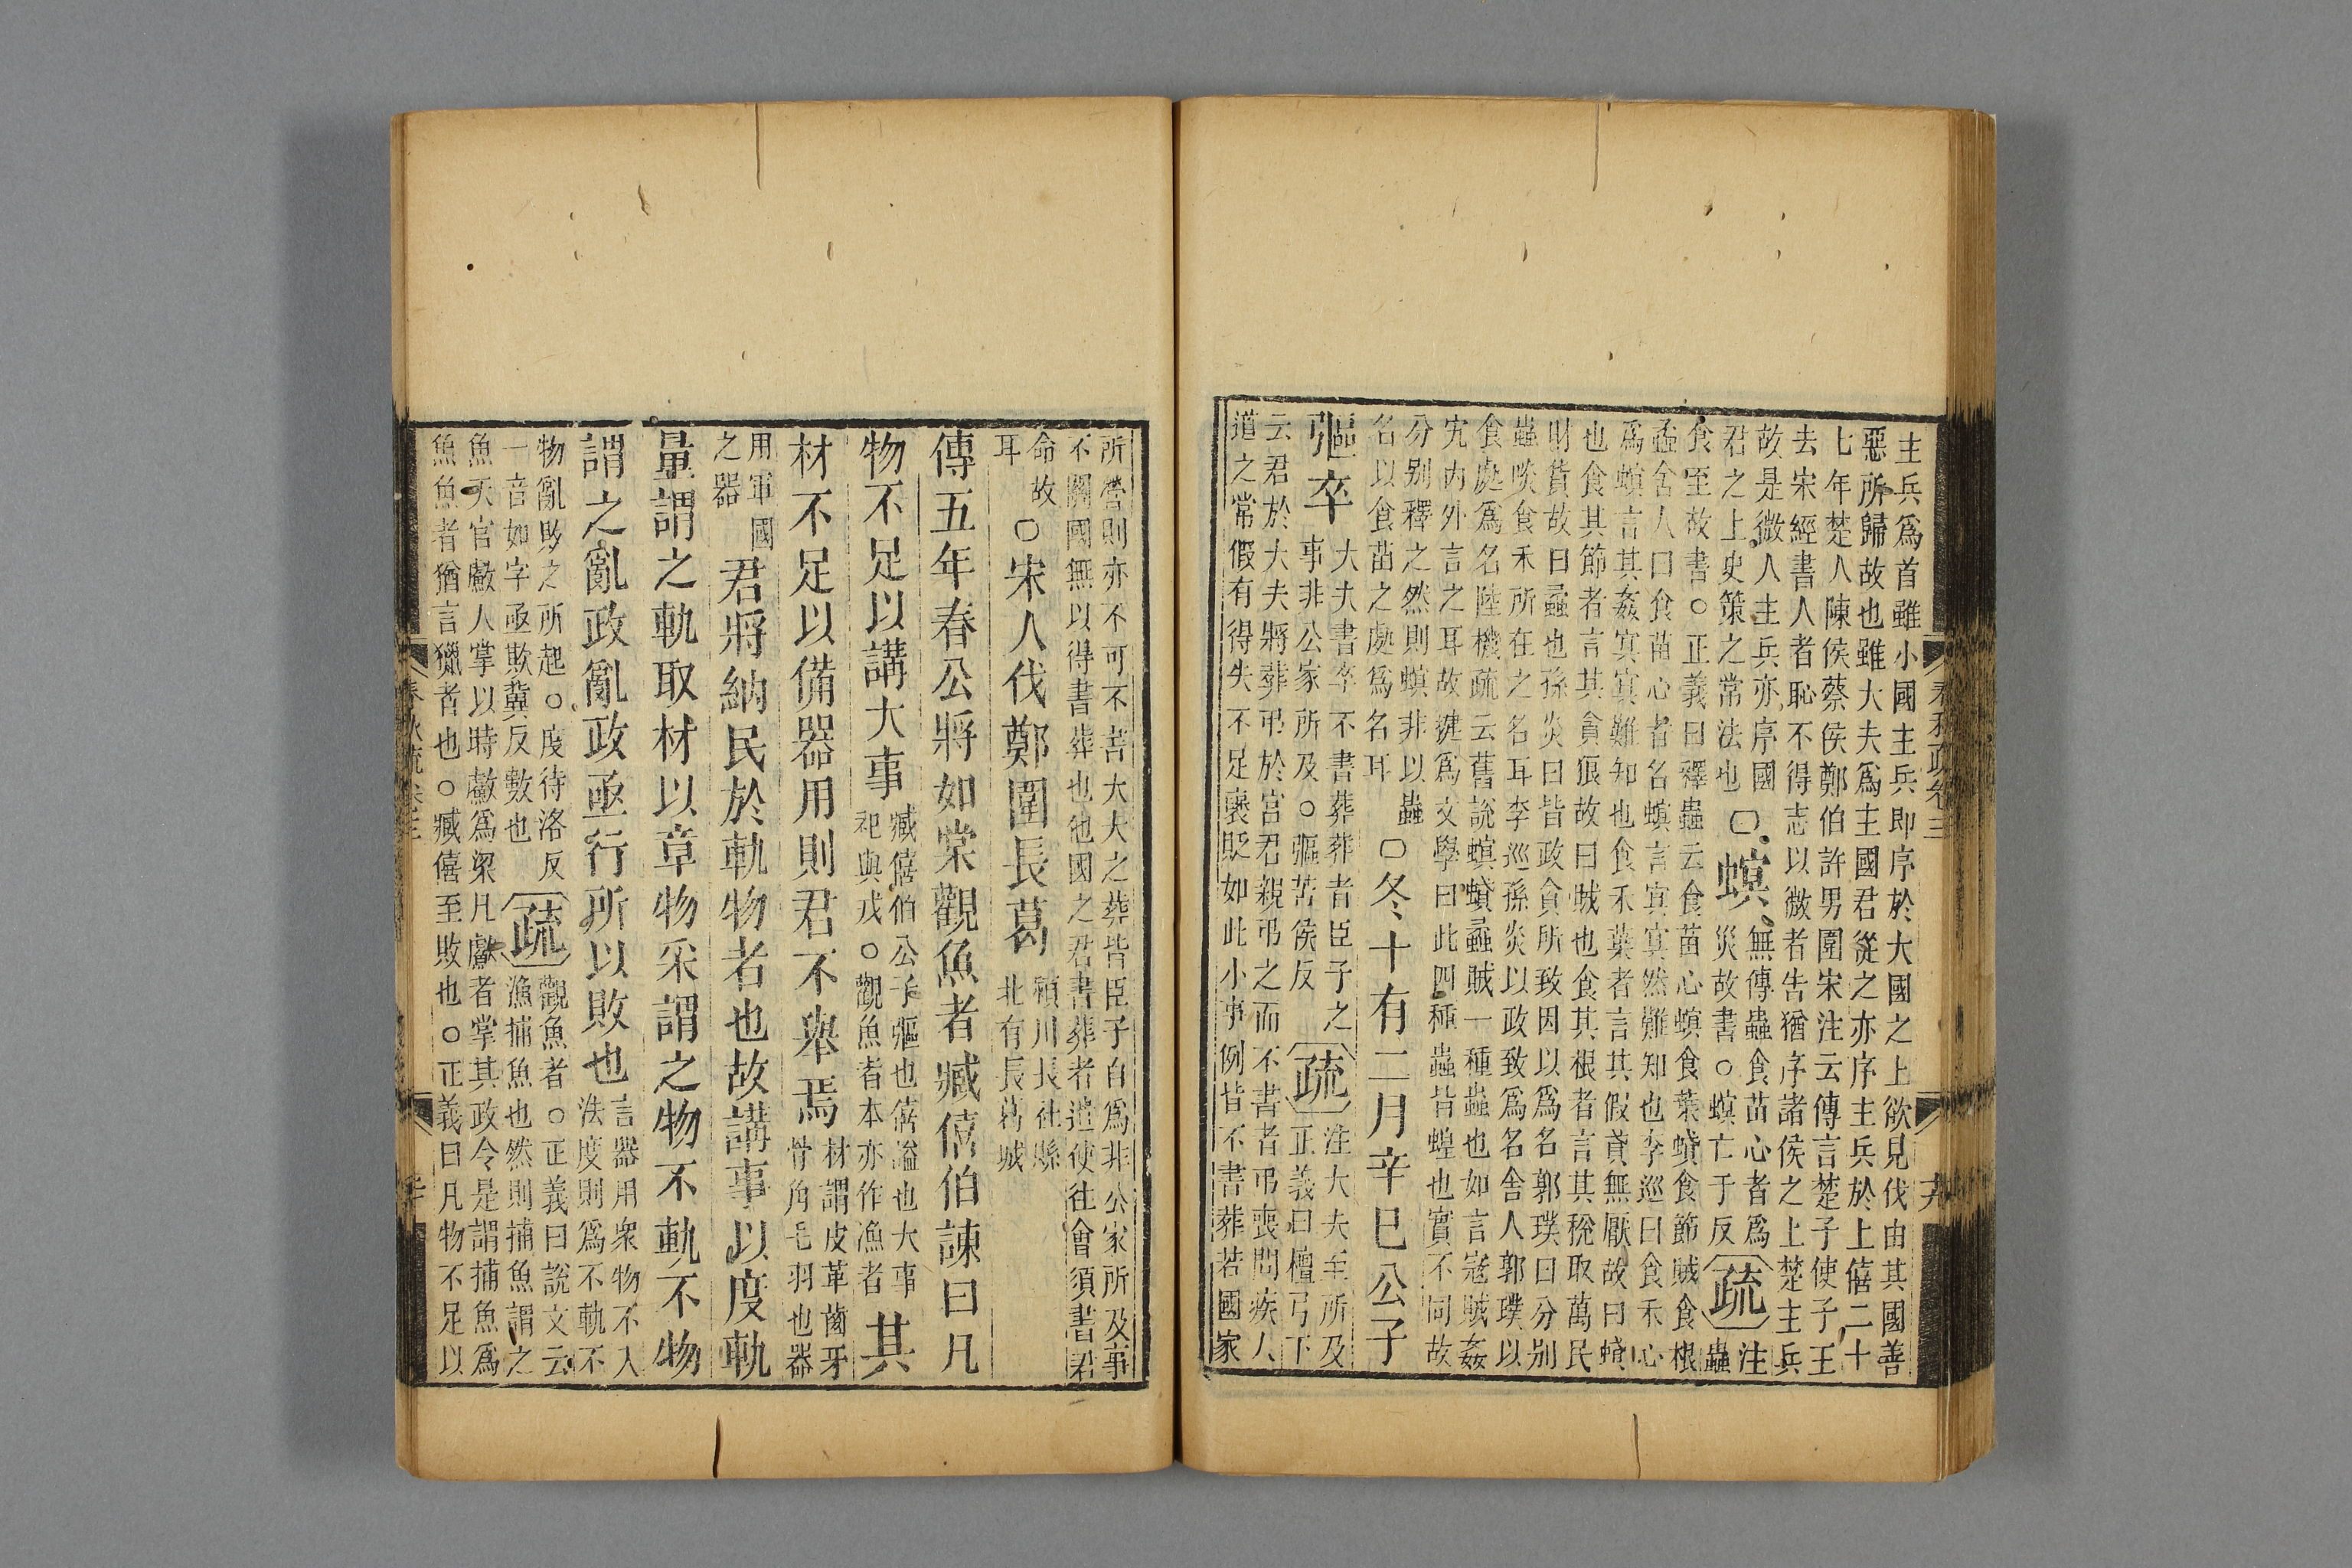 主兵爲首雖小國主兵即序於大國之上欲見伐由其國善
惡所歸故也雖大夫爲主國君從之亦序主兵於上僖二十
七年楚人陳侯蔡侯鄭伯許男圍宋注云傳言楚子使子王
去宋經書人者恥不得志以微者告猶序諸侯之上楚主兵
故是微人主兵亦序國
君之上史策之常法也
○螟
無傳蟲食苗心者爲
災故書○螟亡于反
疏
注
蟲
食至故書○正義曰釋蟲云食苗心螟食葉蟘食節賊食根
蟊舍人曰食苗心者名螟言冥冥然難知也李巡曰食禾心
爲螟言其姦冥冥難知也食禾葉者言其假貣無厭故曰蟘
也食其節者言其貪狠故曰賊也食其根者言其稅取萬民
財貨故曰蟊也孫炎曰皆政貪所致因以爲名郭璞曰分别
蟲啖食禾所在之名耳李巡孫炎以政致爲名舍人郭璞以
食處爲名陸機疏云舊說螟蟘蟊賊一種蟲也如言寇賊姦
宄内外言之耳故犍爲文學曰此四種蟲皆蝗也實不同故
分别釋之然則螟非以蟲
名以食苗之處爲名耳
○冬十有二月辛巳公子
彄卒
大夫書卒不書葬葬者臣子之
事非公家所及○彄苦侯反
疏
注大夫至所及
正義曰檀弓下
云君於大夫將葬弔於宫君親弔之而不書者弔喪問疾人
道之常假有得失不足襃貶如此小事例皆不書葬若國家
春秋疏卷三
十九
所營則亦不可不書大夫之葬皆臣子自爲非公家所及事
不關國無以得書葬也他國之君書葬者遣使往會須書君
命故
耳
○宋人伐鄭圍長葛
潁川長社縣
北有長葛城
傳五年春公將如棠觀魚者臧僖伯諫曰凡
物不足以講大事
臧僖伯公子彄也僖謚也大事
祀與戎○觀魚者本亦作漁者
其
材不足以備器用則君不舉焉
材謂皮革齒牙
骨角毛羽也器
用軍國
之器
君將納民於軌物者也故講事以度軌
量謂之軌取材以章物采謂之物不軌不物
謂之亂政亂政亟行所以敗也
言器用衆物不入
法度則爲不軌不
物亂敗之所起○度待洛反
一音如字亟欺冀反數也
疏
觀魚者○正義曰說文云
漁捕魚也然則捕魚謂之
魚天官䱷人掌以時䱷爲梁凡䱷者掌其政令是謂捕魚爲
魚魚者猶言獵者也○臧僖至敗也○正義曰凡物不足以
春秋疏卷三